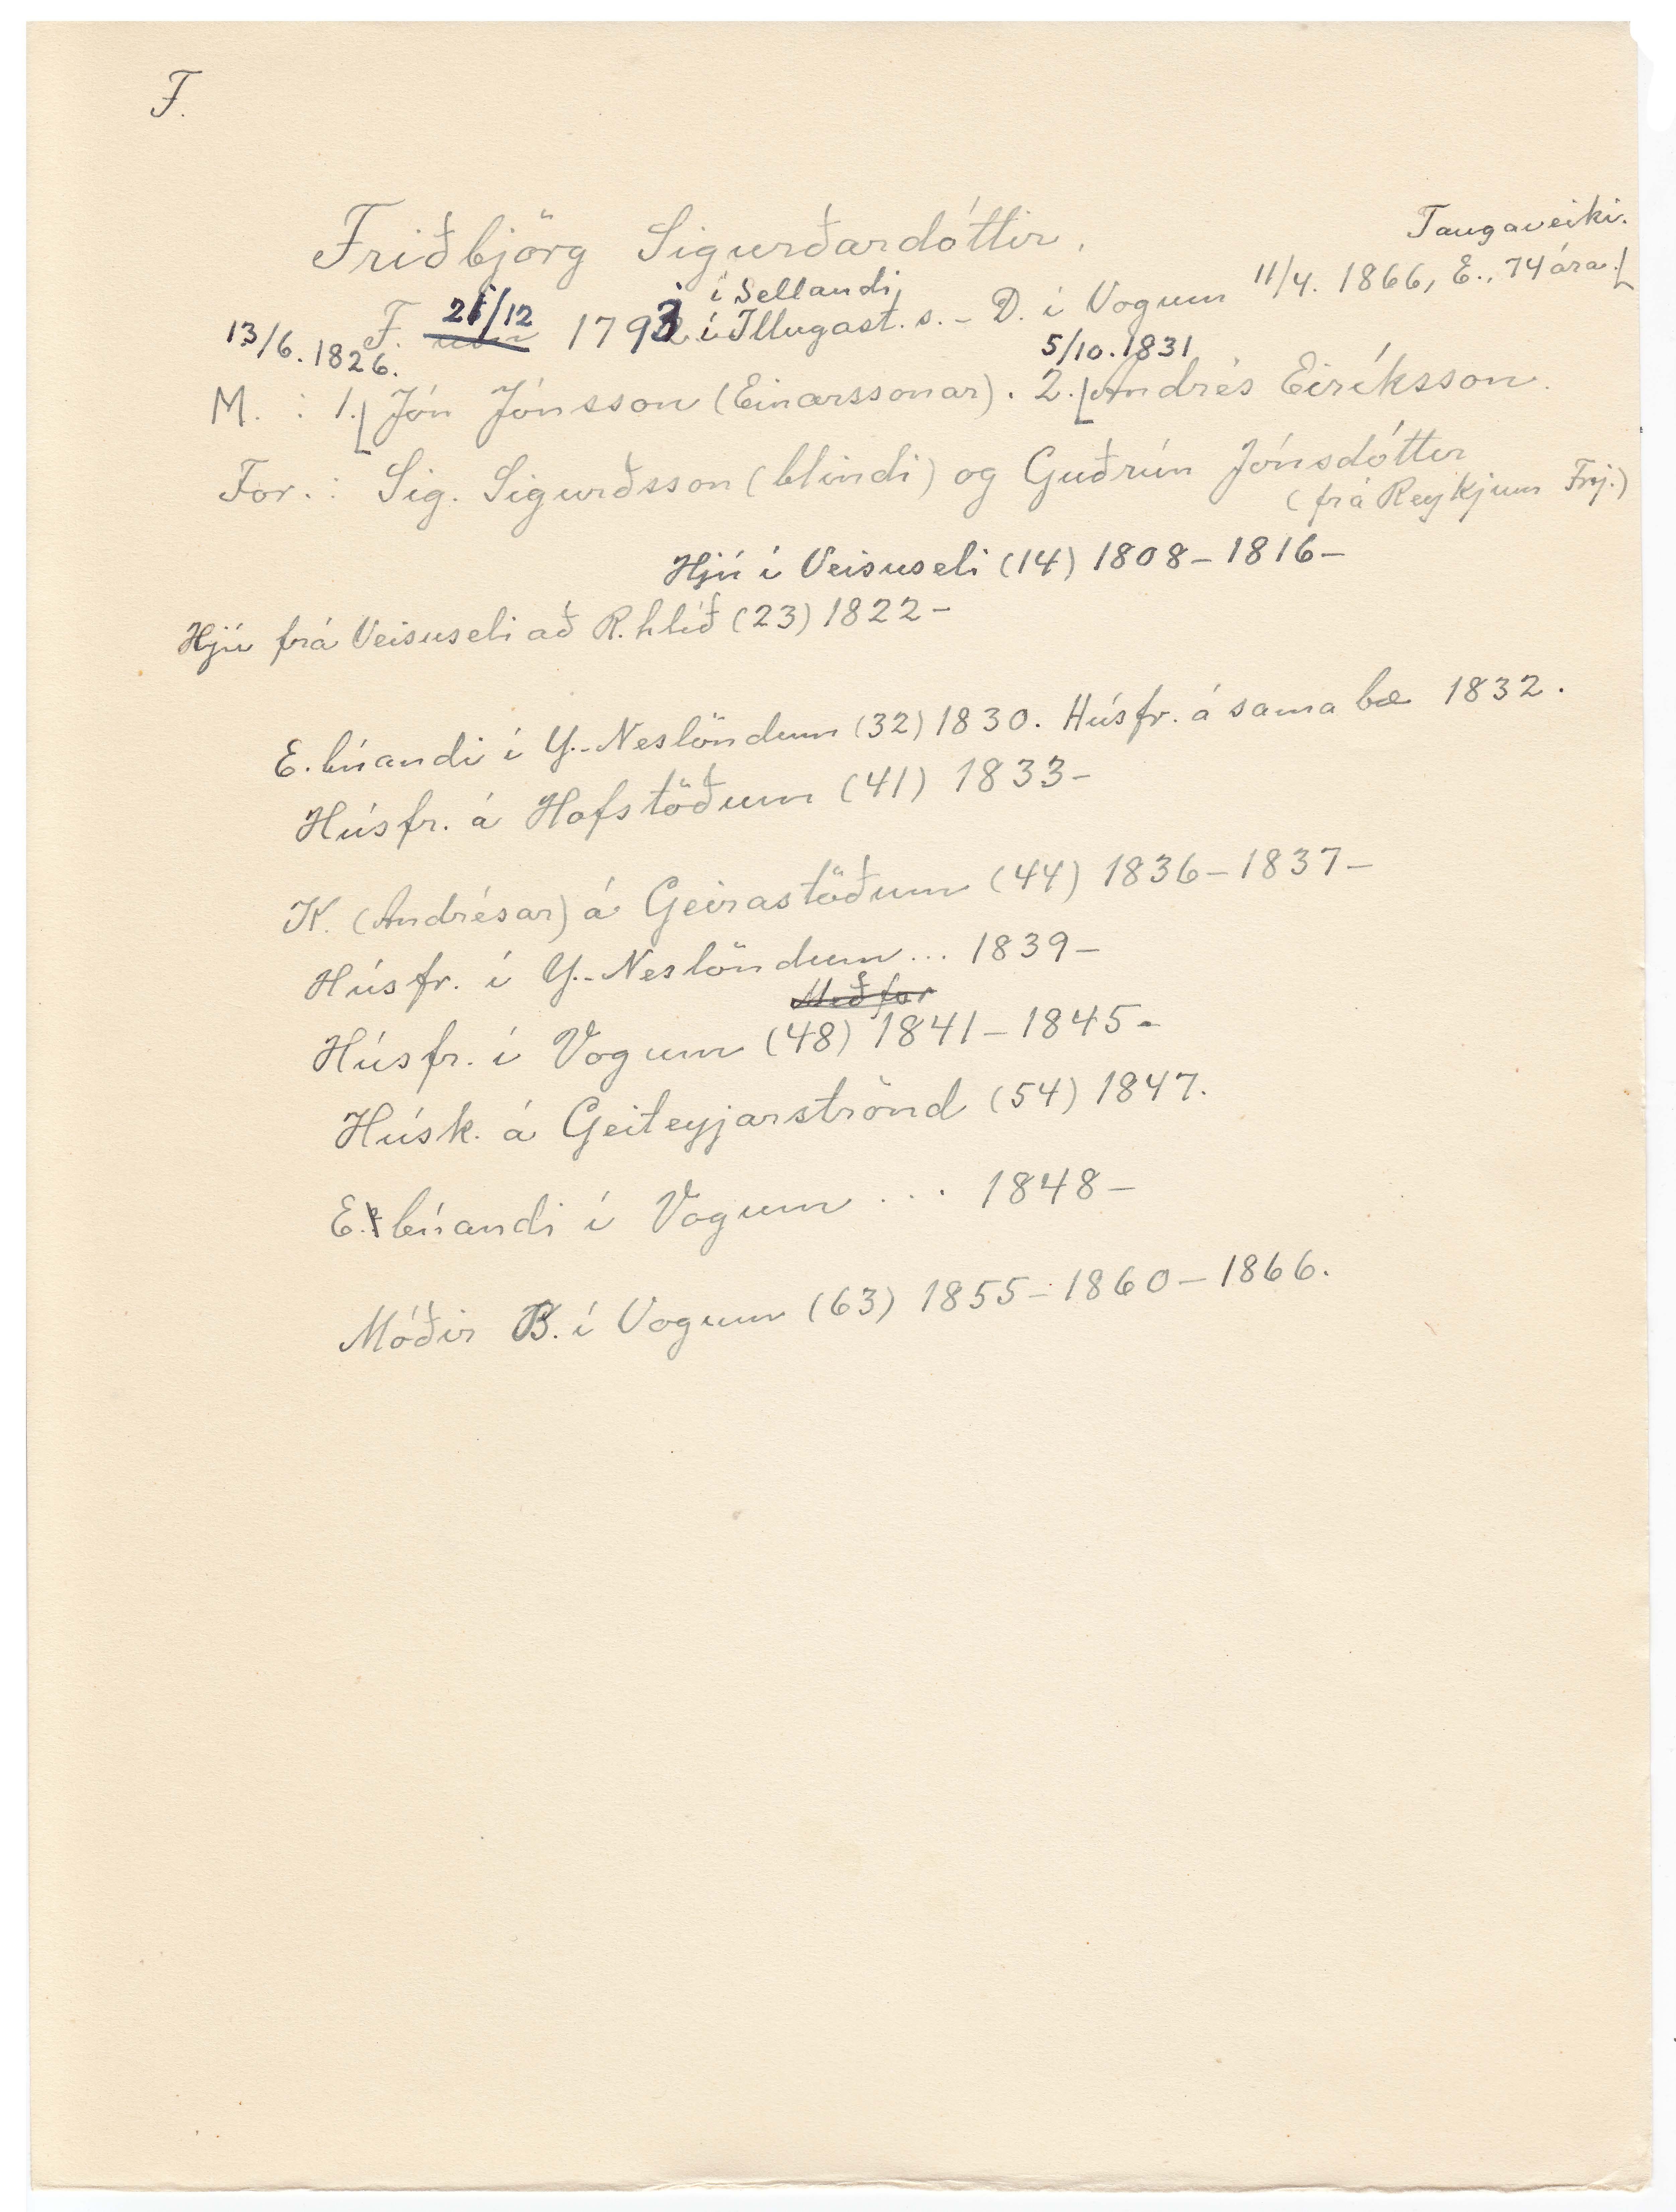 F.
Friðbjörg Sigurðardóttir.
Taugaveiki.
í Sellandi,
F. 21/12 1793 í Illugast. s. - D. í Vogum 11/4. 1866, E., 74 ára.
13/6. 1826.
5/10. 1831
M. : 1. Jón Jónsson (Einarssonar). 2. Andrés Eiríksson.
For. : Sig. Sigurðsson (blindi) og Guðrún Jónsdóttir
(frá Reykjum Fnj.)
Hjú í Veisuseli (14) 1808 - 1816 -
Hjú frá Veisuseli að R.hlíð (23) 1822 -
E. búandi í Y.-Neslöndum (32) 1830. Húsfr. á sama bæ 1832.
Húsfr. á Hofstöðum (41) 1833 -
K. (Andrésar) á Geirastöðum (44) 1836 - 1837 -
Húsfr. í Y.-Neslöndum ... 1839 -
Með for
Húsfr. í Vogum (48) 1841 - 1845 -
Húsk. á Geiteyjarströnd (54) 1847.
E. búandi í Vogum ... 1848 -
Móðir B. í Vogum (63) 1855 - 1860 - 1866.